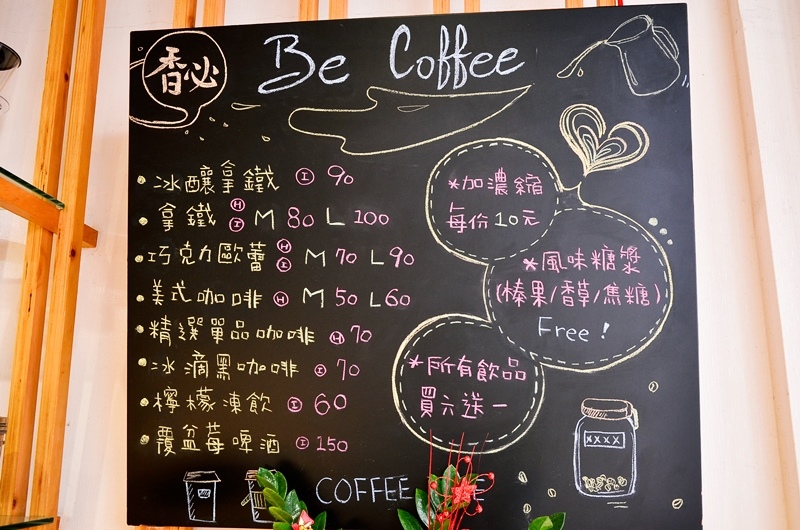 香必
Be Coffee
冰釀拿鐵 Ⓘ 90
拿鐵 Ⓗ Ⓘ M 80 L 100
巧克力歐蕾 Ⓗ Ⓘ M 70 L 90
美式咖啡 Ⓗ M 50 L 60
精選單品咖啡 Ⓗ 70
冰滴黑咖啡 Ⓘ 70
檸檬凍飲 Ⓘ 60
覆盆莓啤酒 Ⓘ 150
*加濃縮
每份10元
*風味糖漿
(榛果/香草/焦糖)
Free!
*所有飲品
買六送一
XXXX
COFFEE